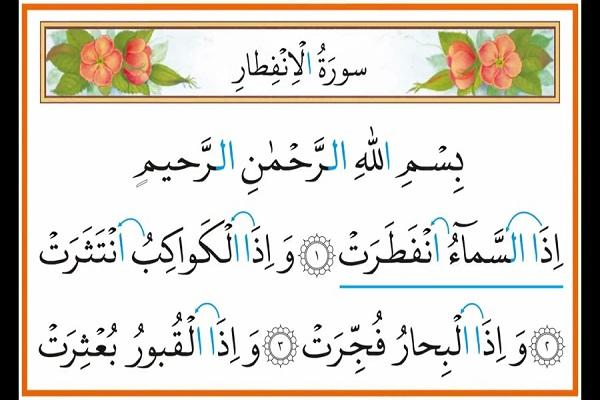 سورَةُ الْاِنْفِطارِ
بِسْمِ اللّٰهِ الرَّحْمٰنِ الرَّحیمِ
اِذَا السَّمآءُ انْفَطَرَتْ ﴿۱﴾ وَ اِذَا الْکَواکِبُ انْتَثَرَتْ
﴿۲﴾ وَ اِذَا الْبِحارُ فُجِّرَتْ ﴿۳﴾ وَ اِذَا الْقُبورُ بُعْثِرَتْ